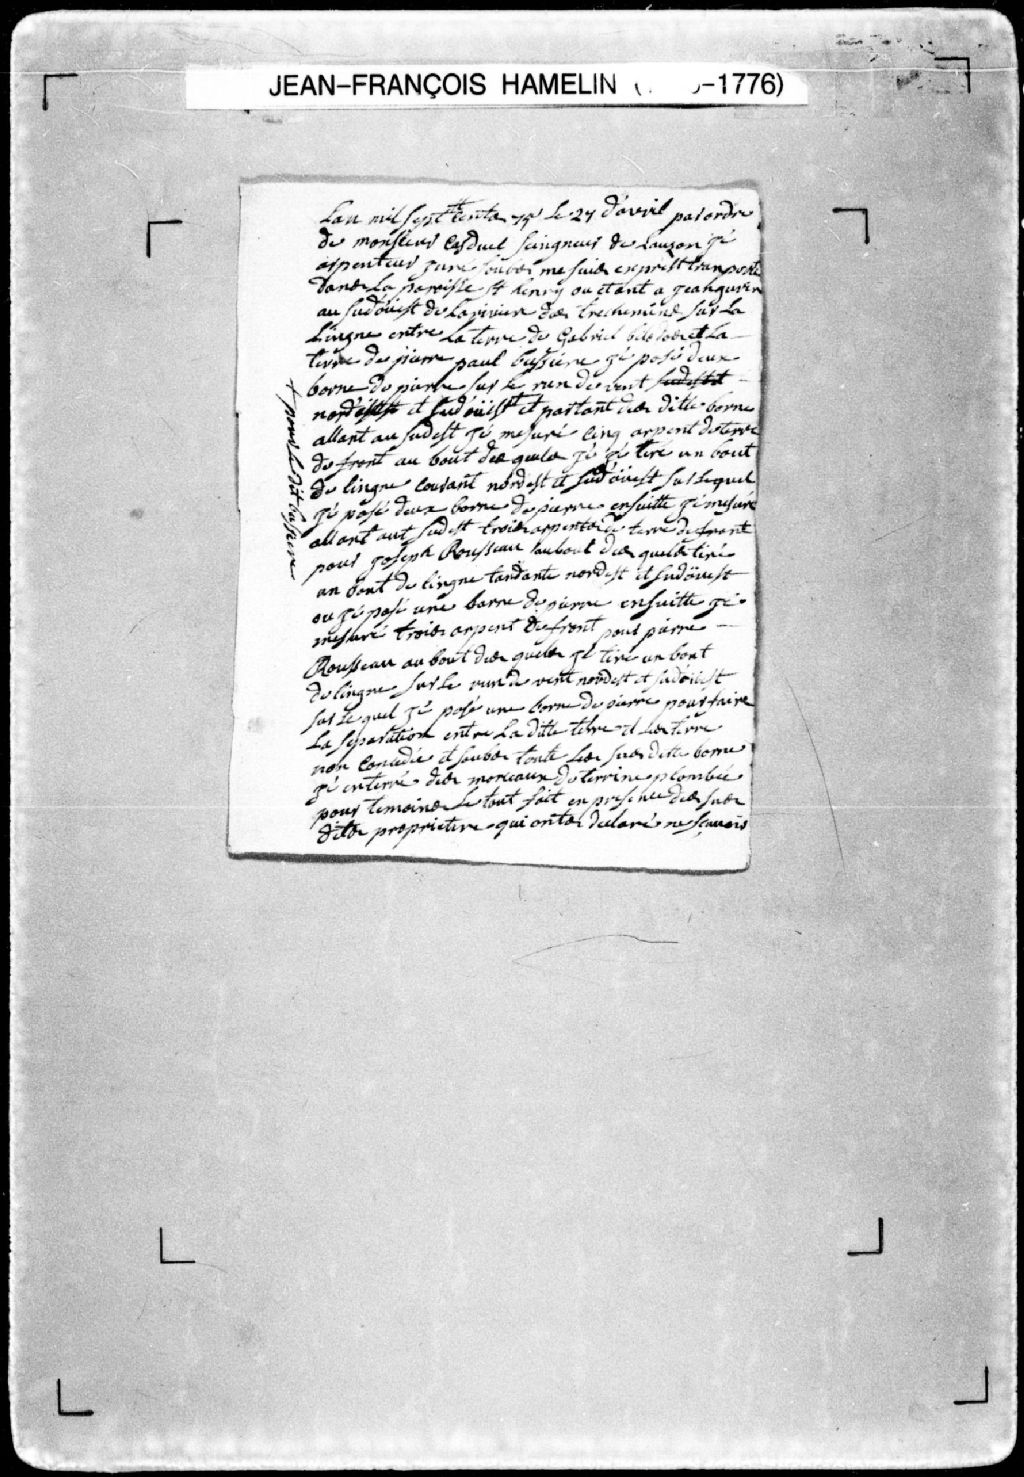 JEAN-FRANÇOIS HAMELIN ( -1776)
Lan mil sept le 27 d'avril par ordre
de monsieur seingneur de Lauzon gé
arpenteur juré soubs me suis expres transporté
dans la paroisse st henry ou etant a
au sudöuest de la riviere des trechemins sur la
Lingne entre La terre de Gabriel et La
terre de pierre paul bussiere gé posé deux
borne de pierre sur le run de vent
et sudöüist et partant des ditte borne
allant au sudest gé mesuré cinq arpent de terre
de front au bout des quels gé gé tire un bout
de lingne courant nordest et sudöuest sur lequel
gé posé deux borne de pierre ensuitte gé mesuré
allant aut sudest trois arpents de terre de front
pour joseph Rousseau au bout des quels tiré
un bout de lingne tandante nordest et sudöuest
ou gé posé une borne de pierre ensuitte gé
mesuré trois arpent de front pour pierre
Rousseau au bout des quels gé tire un bout
de lingne sur le run de vent nordest et sudöuest
sur le quel gé posé une borne de pierre pour faire
La separation entre La ditte terre et Les terre
non concedée et soubs toute Les sus ditte borne
gé enterré des morceaux de terrine plombée
pour temoins Le tout fait en presence des sus
dits proprietere qui onts declaré ne sçavoir
+ pour le dit bussiere